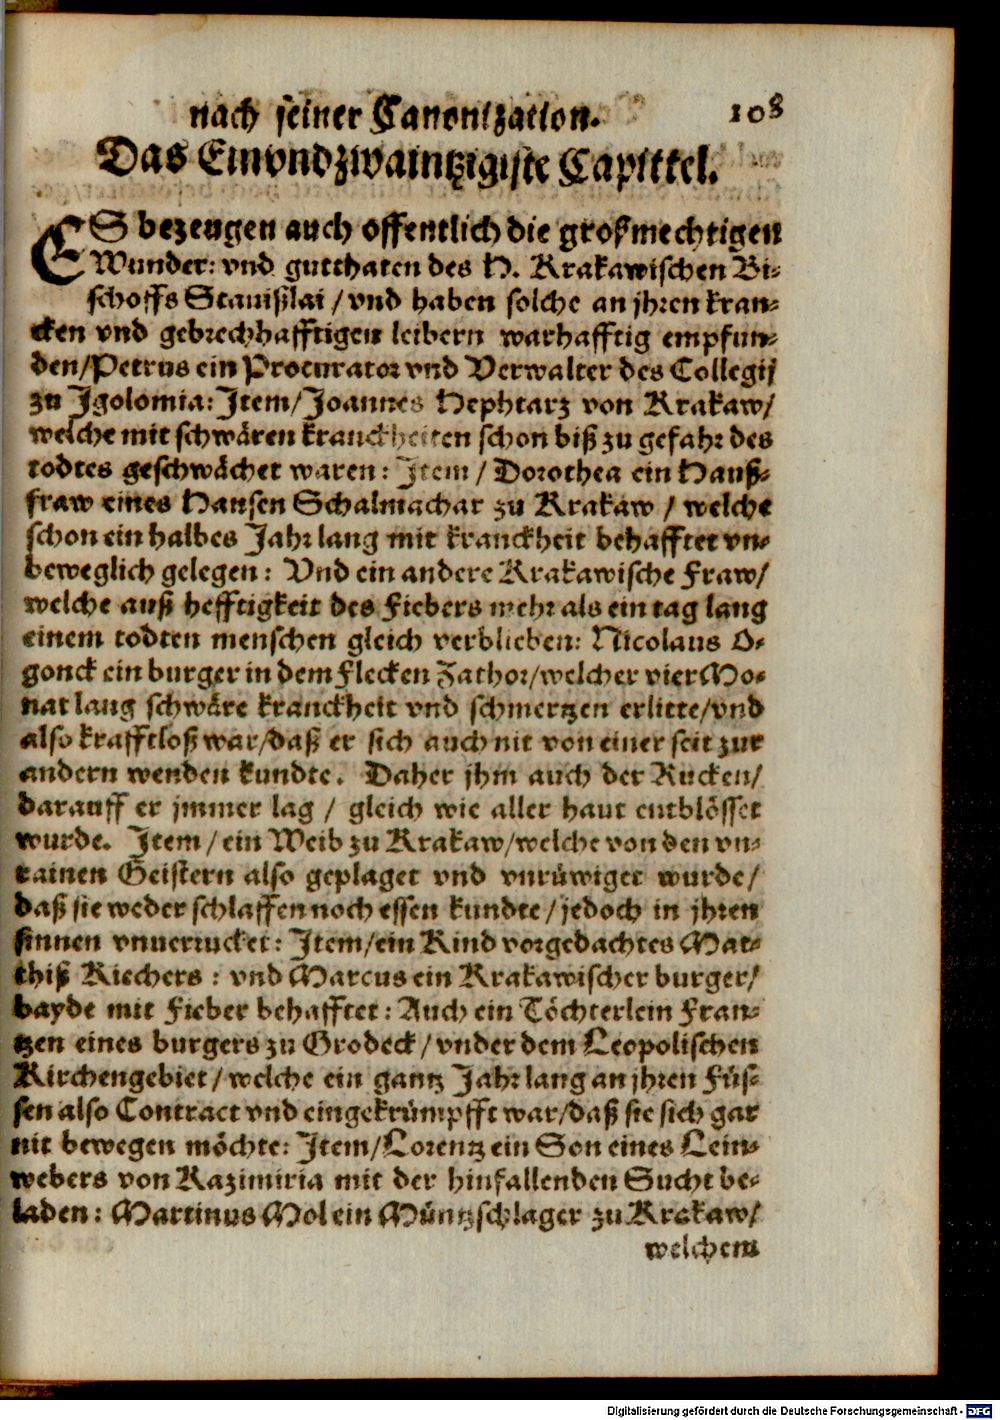 nach seiner Canonization. 108
Das Einvndzwaintzigiste Capittel.
ES bezeugen auch offentlich die großmechtigen
Wunder: vnd gutthaten des H. Krakawischen Bi-
schoffs Stanißlai / vnd haben solche an jhren kran-
cken vnd gebrechhafftigen leibern warhafftig empfun-
den/Petrus ein Procurator vnd Verwalter des Collegij
zu Jgolomia: Jtem/Joannes Hephtarz von Krakaw/
welche mit schwären kranckheiten schon biß zu gefahr des
todtes geschwächet waren: Jtem / Dorothea ein Hauß-
fraw eines Hansen Schalmachar zu Krakaw / welche
schon ein halbes Jahr lang mit kranckheit behafftet vn-
beweglich gelegen: Vnd ein andere Krakawische Fraw/
welche auß hefftigkeit des Fiebers mehr als ein tag lang
einem todten menschen gleich verblieben: Nicolaus O-
gonck ein burger in dem Flecken Zathor/welcher vier Mo-
nat lang schwäre kranckheit vnd schmertzen erlitte/vnd
also krafftloß war/daß er sich auch nit von einer seit zur
andern wenden kundte. Daher jhm auch der Rucken/
darauff er jmmer lag / gleich wie aller haut entblösset
wurde. Jtem / ein Weib zu Krakaw/welche von den vn-
rainen Geistern also geplaget vnd vnrüwiget wurde/
daß sie weder schlaffen noch essen kundte / jedoch in jhren
sinnen vnuerrucket: Jtem/ein Kind vorgedachtes Mat-
thiß Riechers : vnd Marcus ein Krakawischer burger/
bayde mit Fieber behafftet: Auch ein Töchterlein Fran-
tzen eines burgers zu Grodeck / vnder dem Leopolischen
Kirchengebiet / welche ein gantz Jahr lang an jhren Füs-
sen also Contract vnd eingekrümpfft war/daß sie sich gar
nit bewegen möchte: Jtem/Lorentz ein Son eines Lein-
webers von Kazimiria mit der hinfallenden Sucht be-
laden: Martinus Mol ein Müntzschlager zu Krakaw/
welchem
Digitalisierung gefördert durch die Deutsche Forschungsgemeinschaft - DFG